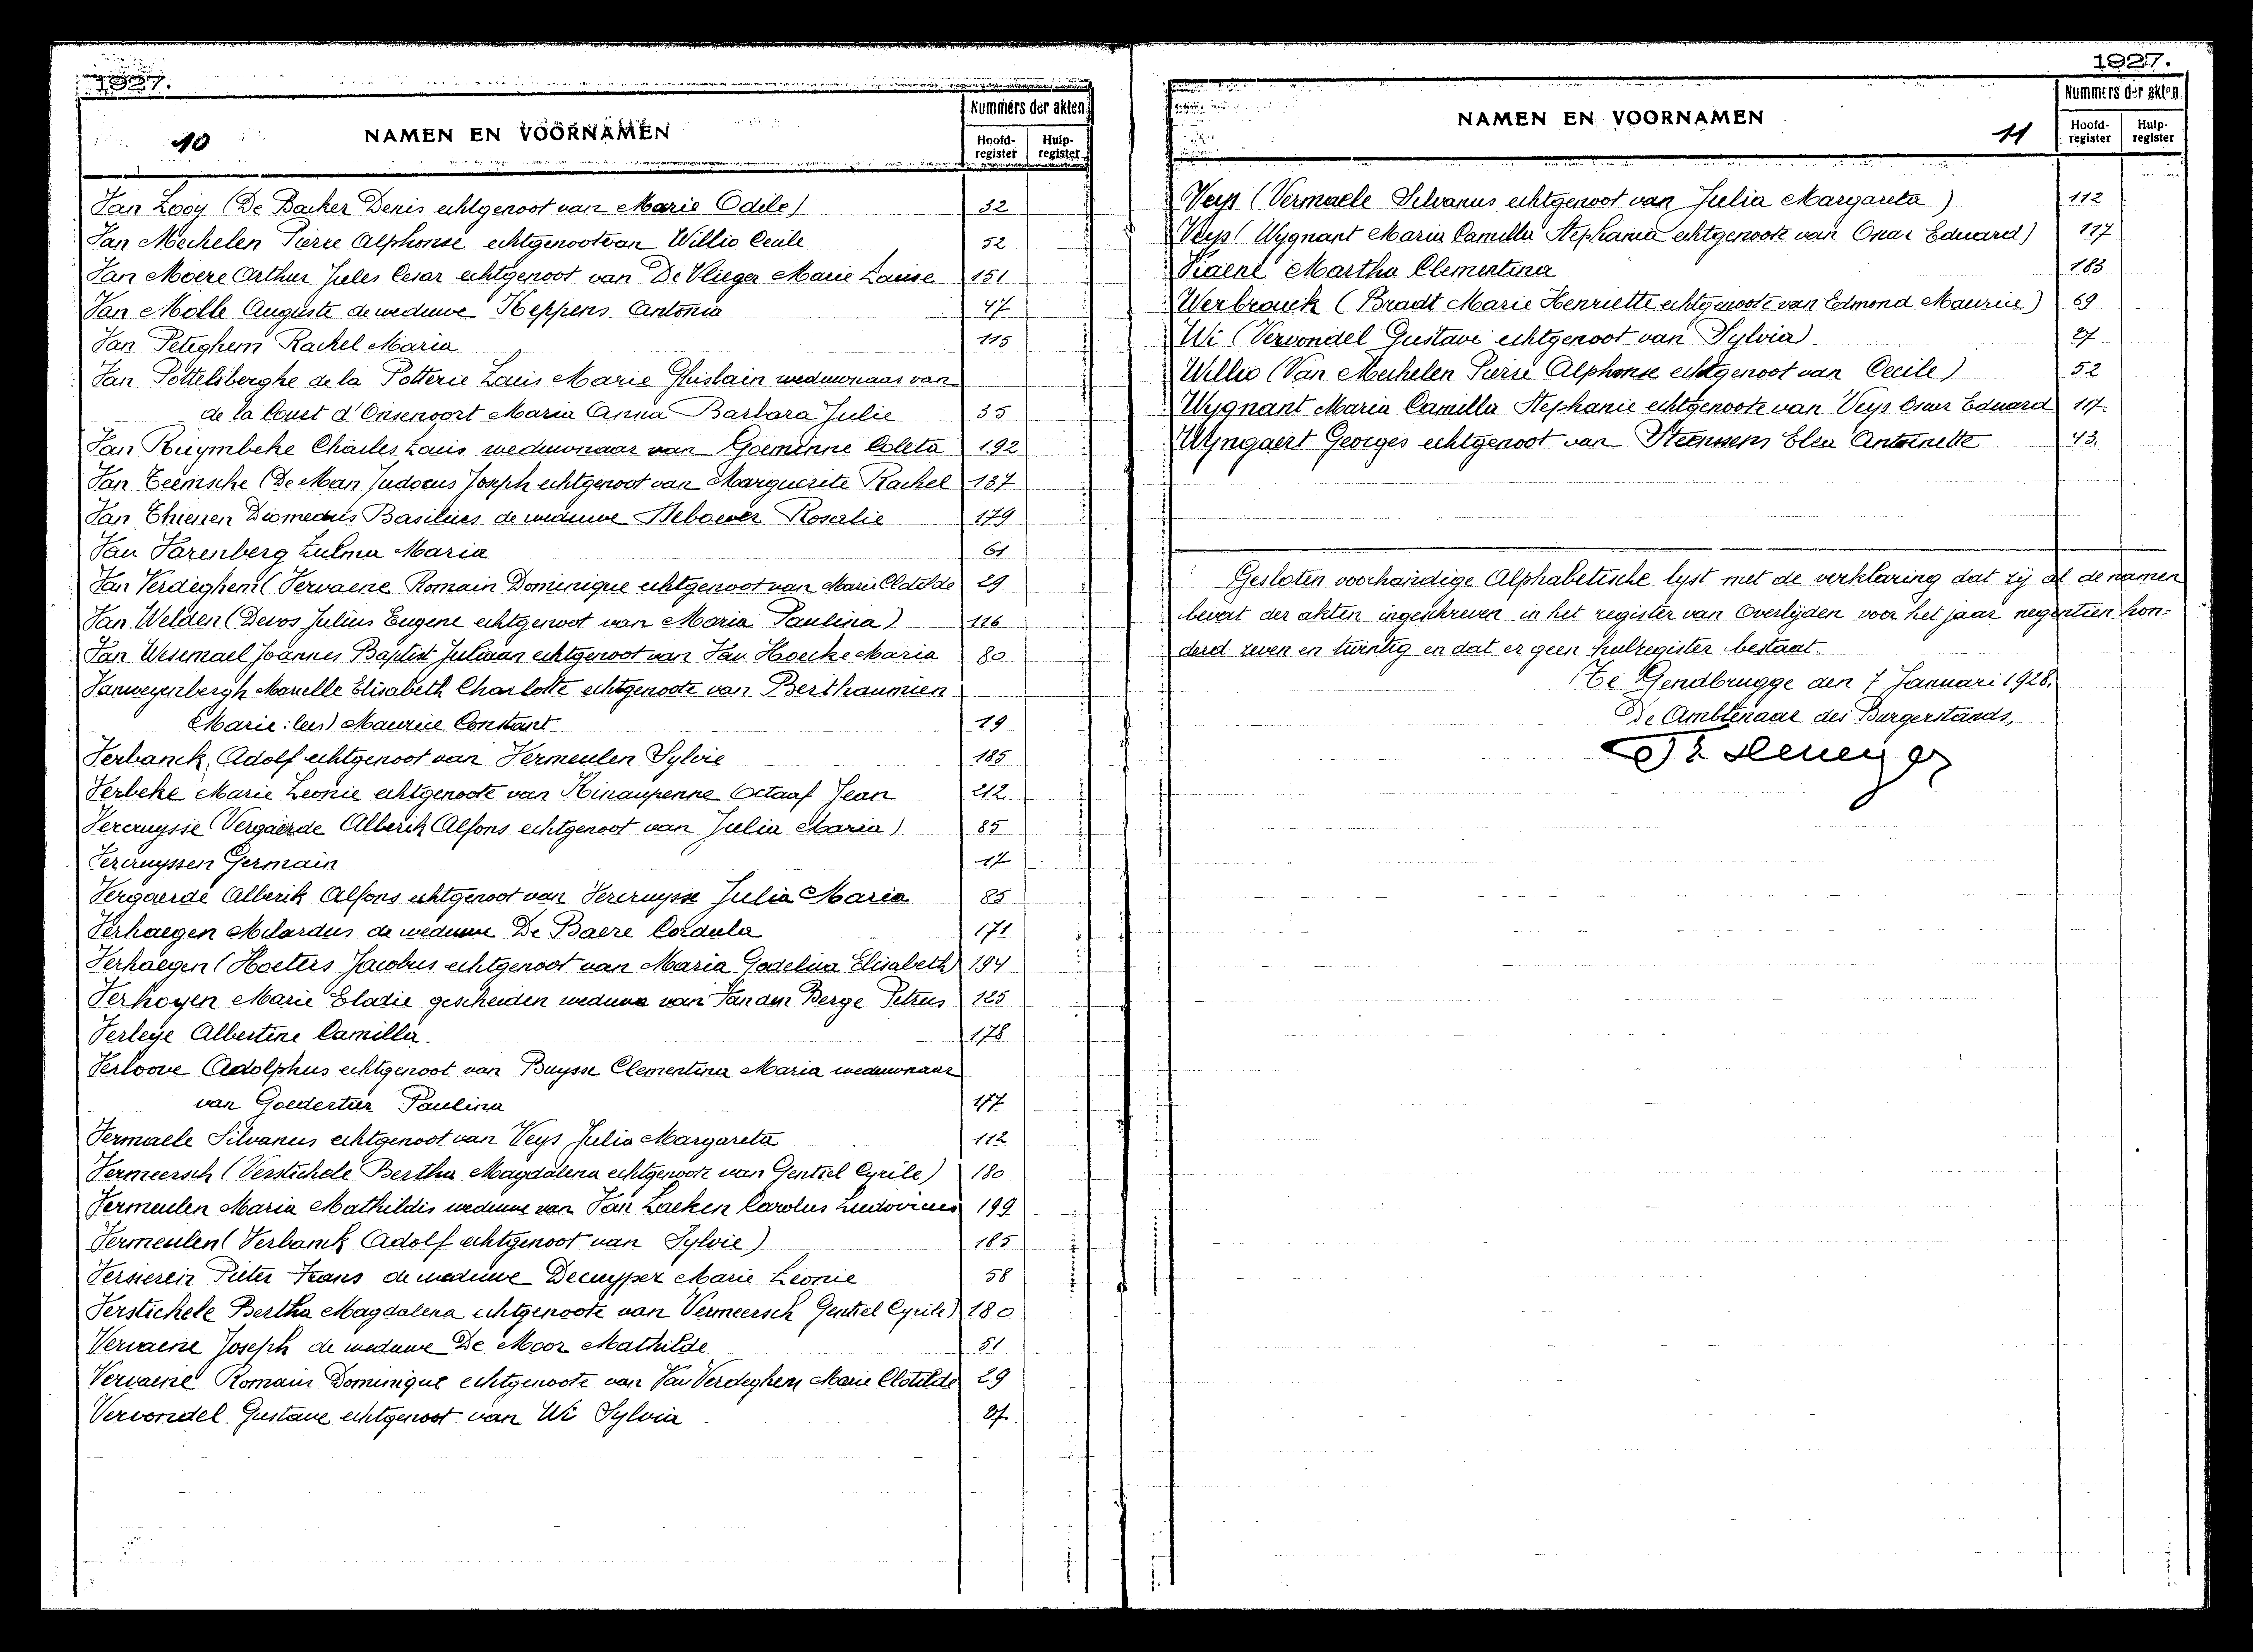 1927.
10
NAMEN EN VOORNAMEN
Nummers der akten
Hoofd-register
Hulp-register
Van Looy (De Backer Denis echtgenoot van Marie Odile) 32
Van Mechelen Pierre Alphonse echtgenoot van Willio Cecile 52
Van Moere Arthur Jules Cesar echtgenoot van De Vlieger Marie Louise 151
Van Molle Auguste de weduwe Heppens Antonia 47
Van Peteghem Rachel Maria 115
Van Pottelsberghe de la Potterie Louis Marie Ghislain weduwnaar van
de la Court d'Onsenoort Maria Anna Barbara Julie 35
Van Ruymbeke Charles Louis weduwnaar van Goeminne Coleta 192
Van Teemsche (De Man Judocus Joseph echtgenoot van Marguerite Rachel 137
Van Thienen Diomedus Basilius de weduwe Rosalie 179
Van Varenberg Zulma Maria 61
Van Verdeghem (Vervaene Romain Dominique echtgenoot van Marie Clotilde 29
Van Welden (Devos Julius Eugene echtgenoot van Maria Paulina) 116
Van Wesemael Joannes Baptist Juliaan echtgenoot van Van Hoecke Maria 80
Vanweyenbergh Marielle Elisabeth Charlotte echtgenoote van Berthaumieu
Marie:(en) Maurice Constant 19
Verbanck Adolf echtgenoot van Vermeulen Sylvie 185
Verbeke Marie Leonie echtgenoote van Octaaf Jean 212
Vercruysse (Vergaerde Alberik Alfons echtgenoot van Julia Maria) 85
Vercruyssen Germain 17
Vergaerde Alberik Alfons echtgenoot van Vercruysse Julia Maria 85
Verhaegen Medardus de weduwe De Baere Cordula 171
Verhaegen (Hoeters Jacobus echtgenoot van Maria Godelina Elisabeth) 194
Verhoyen Marie Eladie gescheiden weduwe van Van den Berge Petrus 125
Verleye Albertine Camilla 178
Verloove Adolphus echtgenoot van Buysse Clementina Maria weduwnaar
van Goedertier Paulina 117
Vermaele Silvanus echtgenoot van Veys Julia Margareta 112
Vermeersch (Verstichele Bertha Magdalena echtgenoote van Gentiel Cyrile) 180
Vermeulen Maria Mathildis weduwe van Van Laeken Carolus Ludovicus 199
Vermeulen (Verbanck Adolf echtgenoot van Sylvie) 185
Versieren Pieter Frans de weduwe Decuyper Marie Leonie 58
Verstichele Bertha Magdalena echtgenoote van Vermeersch Gentiel Cyrile) 180
Vervaene Joseph de weduwe De Moor Mathilde 51
Vervaene Romain Dominique echtgenoote van Van Verdeghem Marie Clotilde 29
Vervondel Gustave echtgenoot van Wi Sylvia 27
1927.
NAMEN EN VOORNAMEN
11
Nummers der akten
Hoofd-register
Hulp-register
Veys (Vermaele Silvanus echtgenoot van Julia Margareta) 112
Veys (Wygnant Maria Camilla Stephania echtgenoote van Omar Eduard) 117
Viaene Martha Clementina 183
Werbrouck (Bradt Marie Henriette echtgenoote van Edmond Maurice) 69
Wi (Vervondel Gustave echtgenoot van Sylvia) 27
Willio (Van Mechelen Pierre Alphonse echtgenoot van Cecile) 52
Wygnant Maria Camilla Stephanie echtgenoote van Veys Omer Eduard 117
Wyngaert Georges echtgenoot van Steenssens Elsa Antoinette 43.
Gesloten voorhandige Alphabetische lyst met de verklaring dat zij al de namen
bevat der akten ingeschreven in het register van Overlijden voor het jaar negentien hon-
derd zeven en twintig en dat er geen hulpregister bestaat.
Te Gendbrugge den 7 Januari 1928.
De Ambtenaar des Burgerstands,